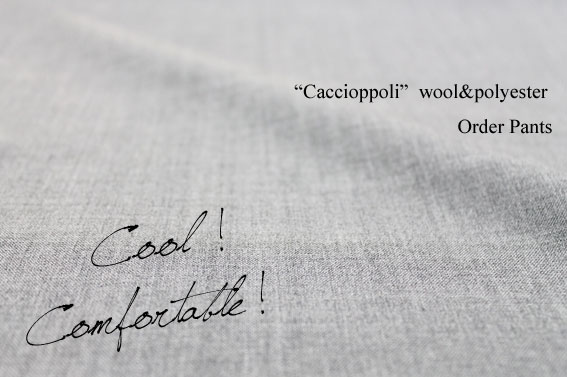 “Caccioppoli” wool&polyester
Order Pants
Cool !
Comfortable !